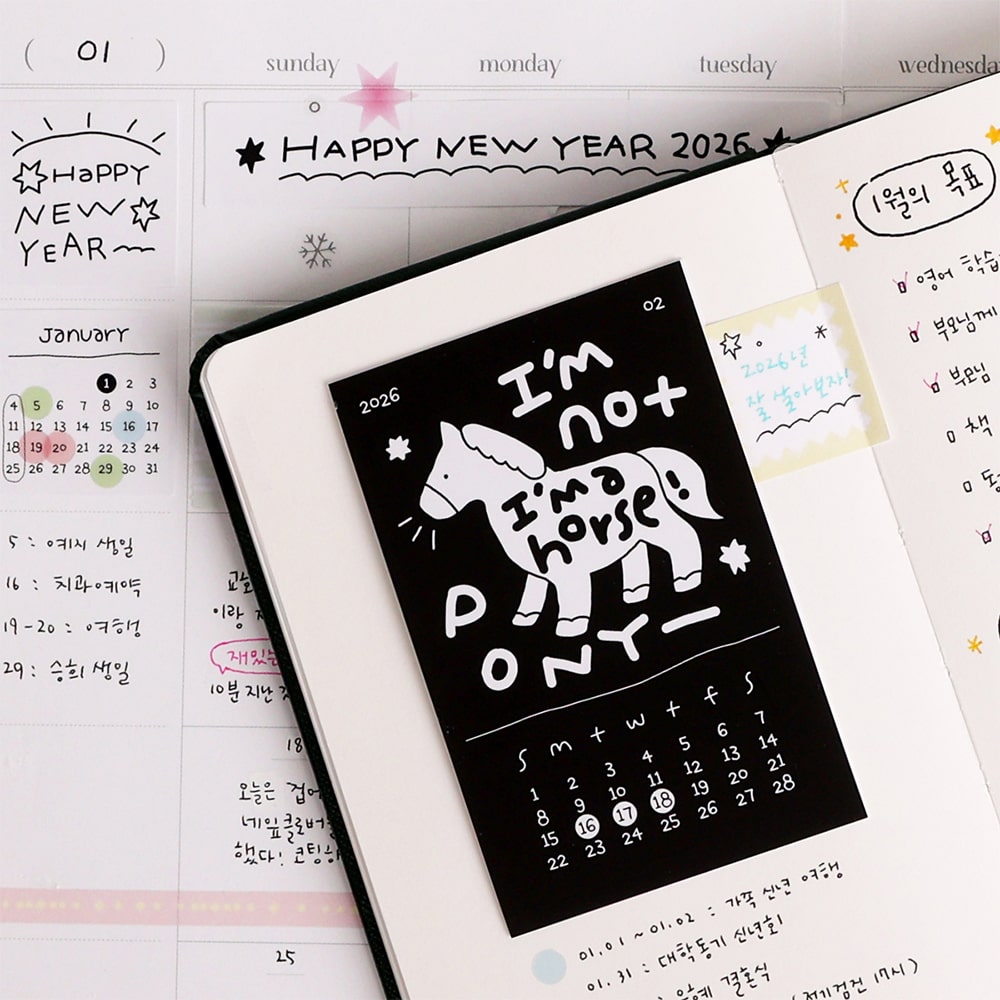 ( 01 )
sunday monday tuesday wednesda
HAPPY
NEW
YEAR
HAPPY NEW YEAR 2026
January
1 2 3
4 5 6 7 8 9 10
11 12 13 14 15 16 17
18 19 20 21 22 23 24
25 26 27 28 29 30 31
5 : 예지 생일
16 : 치과예약
19-20 : 여행
29 : 승희 생일
이랑
재밌는
10분 지난
18
오늘은 겁어
네잎클로버를
했다! 코팅하
25
2026
02
I'm
not
I'm a
horse!
PONY
S m t w t f s
1 2 3 4 5 6 7
8 9 10 11 12 13 14
15 16 17 18 19 20 21
22 23 24 25 26 27 28
2026년
잘 살아보자!
1월의 목표
영어 학습
부모님께
부모님
책
01.01 ~ 01.02 : 가족 신년 여행
01.31 : 대학동기 신년회!
결혼식
(정기검진 17시)